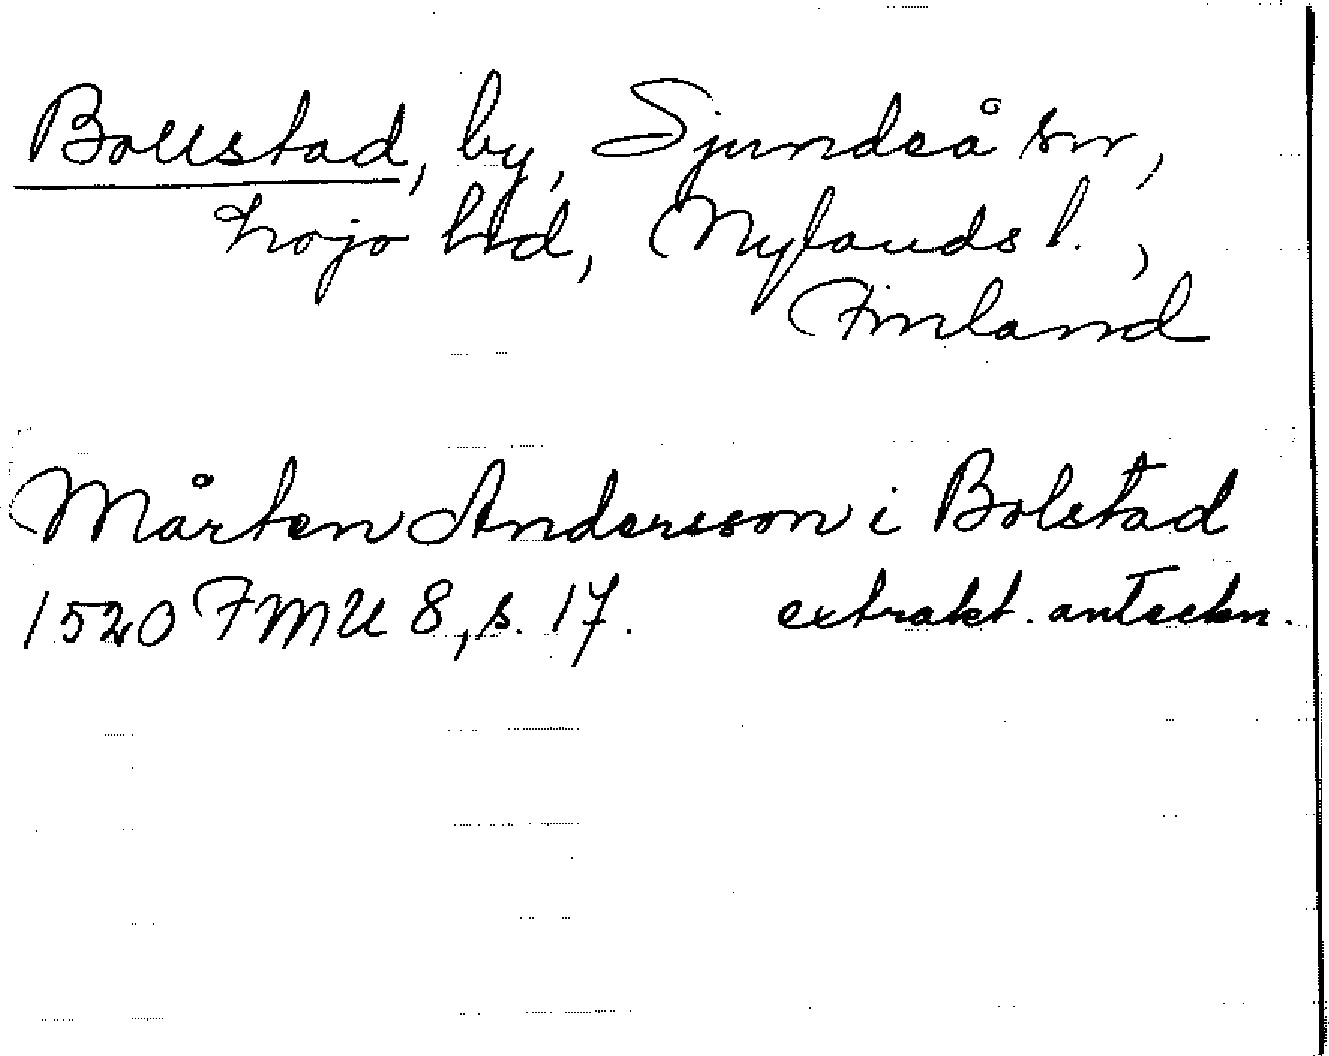 Bollstad, by, Sjundeå sn,
Lojo hd, Nylands l.,
Finland
Mårten Andersson i Bolstad
1520 FMU 8, s. 17. extrakt. anteckn.